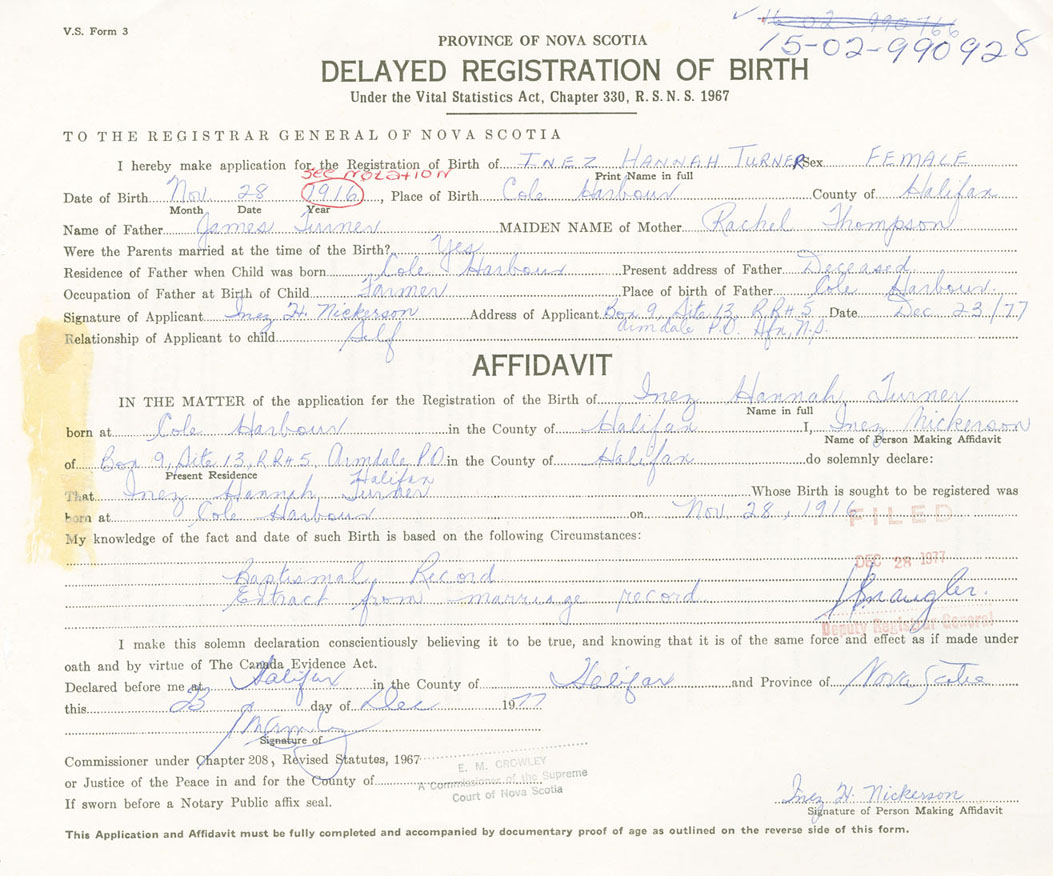 V.S. Form 3
16 02-990766
15-02-990928
PROVINCE OF NOVA SCOTIA
DELAYED REGISTRATION OF BIRTH
Under the Vital Statistics Act, Chapter 330, R. S. N. S. 1967
TO THE REGISTRAR GENERAL OF NOVA SCOTIA
I hereby make application for the Registration of Birth of INEZ HANNAH TURNER Sex FEMALE
SEE NOTATION Print Name in full
Date of Birth Nov. 28 1916, Place of Birth Cole Harbour County of Halifax
Month Date Year
Name of Father James Turner MAIDEN NAME of Mother Rachel Thompson
Were the Parents married at the time of the Birth? Yes
Residence of Father when Child was born Cole Harbour Present address of Father Deceased
Occupation of Father at Birth of Child Farmer Place of birth of Father Cole Harbour.
Signature of Applicant Inez H. Nickerson Address of Applicant Box 9, Site 13, RR#5 Date Dec 23/77
Armdale P.O. Hfx, N.S.
Relationship of Applicant to child Self
AFFIDAVIT
IN THE MATTER of the application for the Registration of the Birth of Inez Hannah Turner
Name in full
born at Cole Harbour in the County of Halifax I, Inez Nickerson
Name of Person Making Affidavit
of Box 9, Site 13, RR#5, Armdale, P.O. in the County of Halifax do solemnly declare:
Present Residence Halifax
That Inez Hannah Turner Whose Birth is sought to be registered was
born at Cole Harbour on Nov. 28, 1916
FILED
My knowledge of the fact and date of such Birth is based on the following Circumstances:
DEC 28 1977
Baptismal Record
Extract from marriage record.
Deputy Registrar General
I make this solemn declaration conscientiously believing it to be true, and knowing that it is of the same force and effect as if made under
oath and by virtue of The Canada Evidence Act.
Declared before me at Halifax in the County of Halifax and Province of Nova Scotia
this 23 day of Dec 1977
Signature of
Commissioner under Chapter 208, Revised Statutes, 1967
or Justice of the Peace in and for the County of
If sworn before a Notary Public affix seal.
E. M. CROWLEY
A Commissioner of the Supreme
Court of Nova Scotia
Inez H. Nickerson
Signature of Person Making Affidavit
This Application and Affidavit must be fully completed and accompanied by documentary proof of age as outlined on the reverse side of this form.